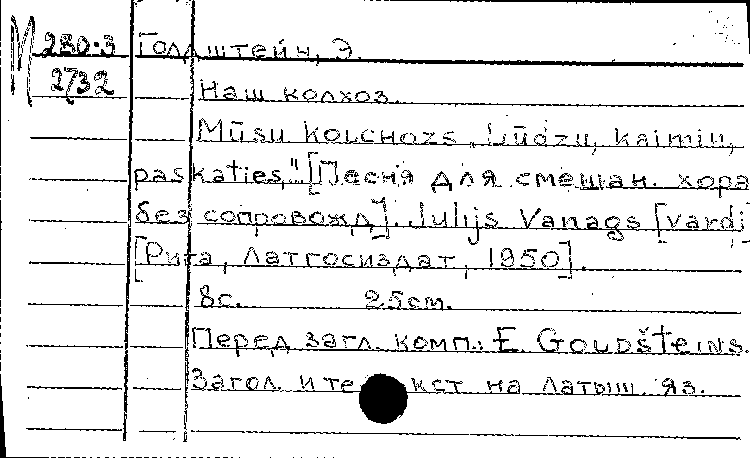 М 280:3 Голдштейн, Э.
2732 Наш колхоз.
Mūsu kolchozs „Lūdzu, kaimiņ,
paskaties," [Песня для смешан. хора
без сопровожд]. Julijs Vanags [vārdi]
[Рига, Латгосиздат, 1950].
8с. 25см.
Перед загл. комп.: E. Goldšteins.
Загол. и текст на латыш. яз.